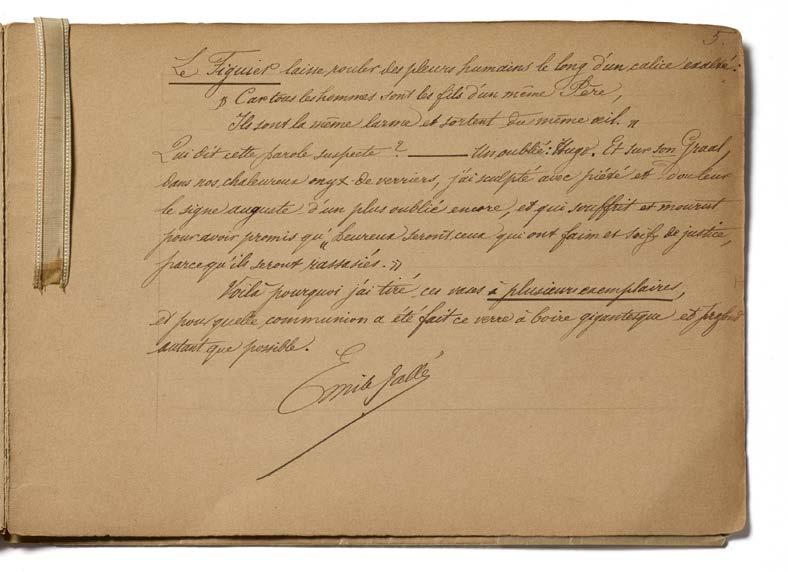 5.
Le Figuier laisse rouler des pleurs humains le long d'un calice exalté :
" Car tous les hommes sont les fils d'un même Père,
Ils sont la même larme et sortent du même œil. "
Qui dit cette parole suspecte ? — Un oublié : Hugo. Et sur son Graal,
dans nos chaleureux onyx de verriers, j'ai sculpté avec piété et douleur
le signe auguste d'un plus oublié encore, et qui souffrit et mourut
pour avoir promis qu' "heureux seront ceux qui ont faim et soif de justice,
parce qu'ils seront rassasiés. "
Voilà pourquoi j'ai tiré ces vases à plusieurs exemplaires,
et pour quelle communion a été fait ce verre à boire gigantesque et profond
autant que possible.
Emile Gallé